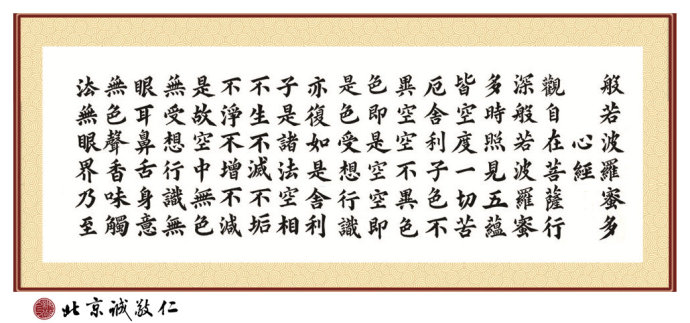 般若波羅蜜多
心經
觀自在菩薩行
深般若波羅蜜
多時照見五蘊
皆空度一切苦
厄舍利子色不
異空空不異色
色即是空空即
是色受想行識
亦復如是舍利
子是諸法空相
不生不滅不垢
不淨不增不減
是故空中無色
無受想行識無
眼耳鼻舌身意
無色聲香味觸
法無眼界乃至
北京诚敬仁